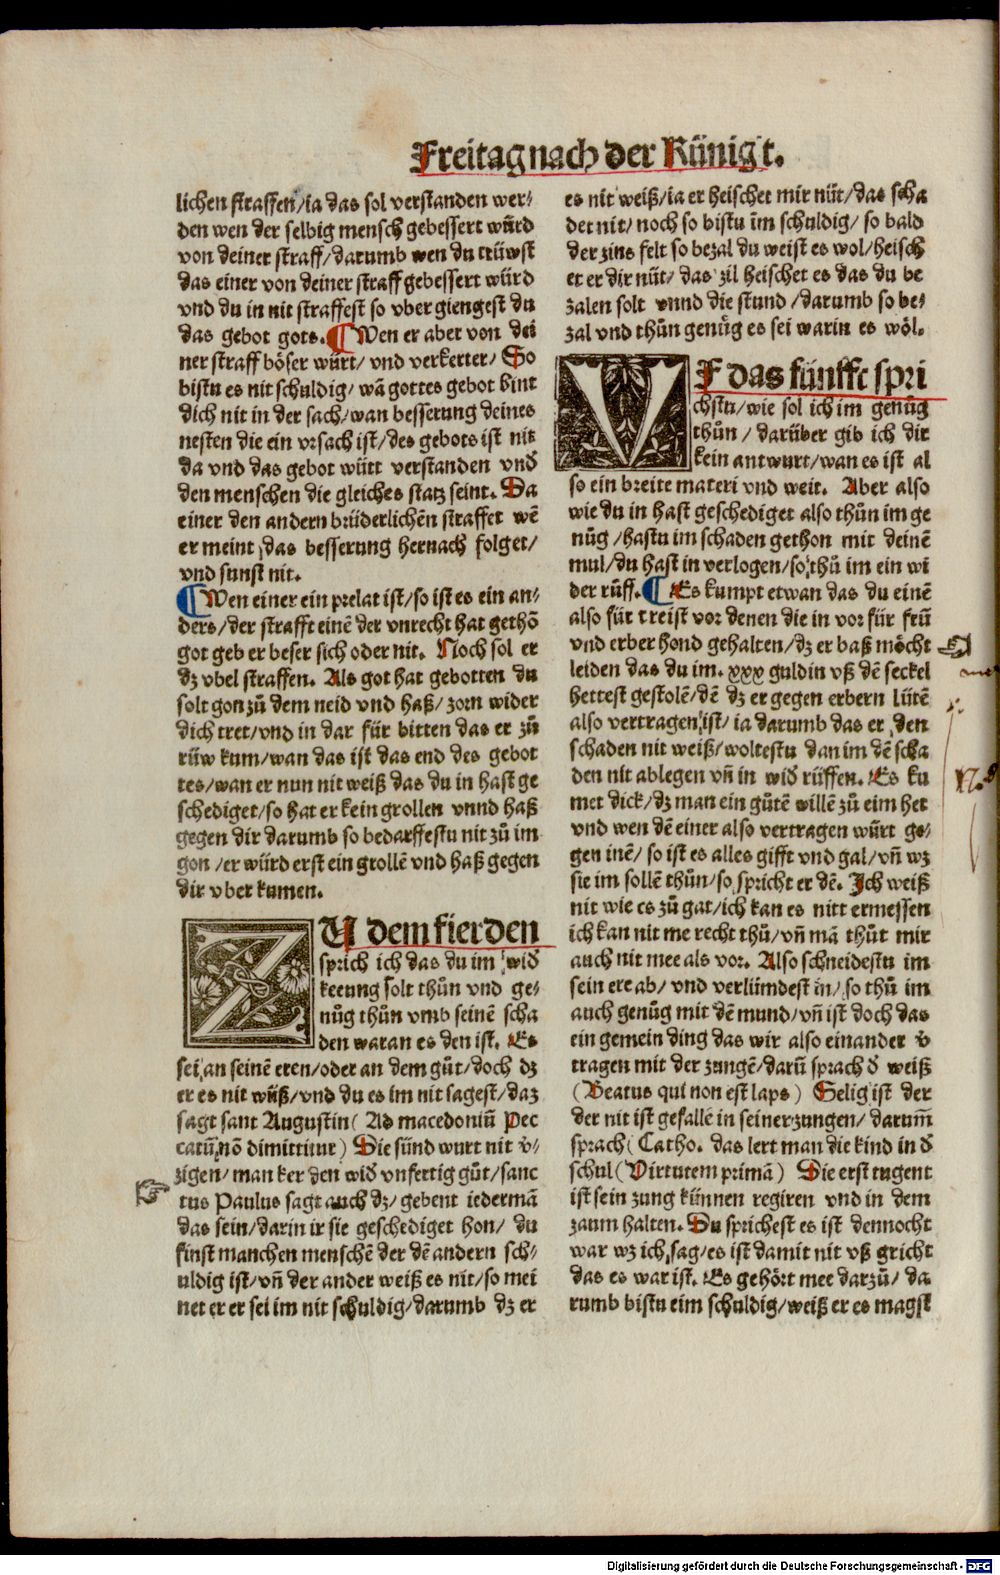 Freitag nach der Künigt.
lichen straffen/ia das sol verstanden wer⸗
den wen der selbig mensch gebessert würd
von deiner straff/darumb wen du trüwst
das einer von deiner straff gebessert würd
vnd du in nit straffest so vber giengest du
das gebot gots. ¶ Wen er aber von dei
ner straff böser würt/vnd verkerter/ So
bistu es nit schuldig/wā gottes gebot bint
dich nit in der sach/wan besserung deines
nesten die ein vrsach ist/des gebots ist nit
da vnd das gebot würt verstanden vnd̄
den menschen die gleiches statz seint. Da
einer den andern brüderlichēn straffet wē
er meint das besserung hernach folget/
vnd sunst nit.
¶ Wen einer ein prelat ist/so ist es ein an⸗
ders/der strafft einē der vnrecht hat gethō
got geb er beser sich oder nit. Noch sol er
dz vbel straffen. Als got hat gebotten du
solt gon zů dem neid vnd haß/zorn wider
dich tret/vnd in dar für bitten das er zů
rüw kum/wan das ist das end des gebot
tes/wan er nun nit weiß das du in hast ge
schediget/so hat er kein grollen vnnd haß
gegen dir darumb so bedarffestu nit zů im
gon/er würd erst ein grollē vnd haß gegen
dir vber kumen.
ZU dem fierden
sprich ich das du im wid̄
keeung solt thůn vnd ge⸗
nůg thůn vmb seinē scha
den waran es den ist. Es
sei an seinē eren/oder an dem gůt/doch dz
er es nit wüß/vnd du es im nit sagest/daz
sagt sant Augustin (Ad macedoniū Pec
catū nō dimittitur) Die sünd wurt nit v̄⸗
zigen/man ker den wid̄ vnfertig gůt/sanc
tus Paulus sagt auch dz/gebent iedermā
das sein/darin ir sie geschediget hon/ du
finst manchen menschē der dē andern sch⸗
uldig ist/vn̄ der ander weiß es nit/so mei
net er er sei im nit schuldig/darumb dz er
es nit weiß/ia er heischet mir nüt/das scha
det nit/noch so bistu im schuldig/so bald
der zins felt so bezal du weist es wol/heisch
et er dir nüt/das zil heischet es das du be
zalen solt vnnd die stund/darumb so be⸗
zal vnd thůn genůg es sei warin es wöl.
VF das fünfft spri
chstu/wie sol ich im genůg
thůn/darüber gib ich dir
kein antwurt/wan es ist al
so ein breite materi vnd weit. Aber also
wie du in hast geschediget also thůn im ge
nůg/hastu im schaden gethon mit deinē
mul/du hast in verlogen/so thů im ein wi
der rüff. ¶ Es kumpt etwan das du einē
also für treist vor denen die in vor für frū
vnd erber hond gehalten/dz er baß möcht
leiden das du im. xxx guldin vß dē seckel
hettest gestolē/dē dz er gegen erbern lütē
also vertragen ist/ia darumb das er den
schaden nit weiß/woltestu dan im dē scha
den nit ablegen vn̄ in wid̄ rüffen. Es ku
met dick/dz man ein gůtē willē zů eim het
vnd wen dē einer also vertragen würt ge⸗
gen inē/so ist es alles gifft vnd gal/vn̄ wz
sie im sollē thůn/so spricht er dē. Ich weiß
nit wie es zů gat/ich kan es nitt ermessen
ich kan nit me recht thů/vn̄ mā thůt mir
auch nit mee als vor. Also schneidestu im
sein ere ab/vnd verlümdest in/so thů im
auch genůg mit dē mund/vn̄ ist doch das
ein gemein ding das wir also einander v̄
tragen mit der zungē/darū sprach d̄ weiß
(Beatus qui non est laps) Selig ist der
der nit ist gefallē in seiner zungen/darum̄
sprach (Catho. das lert man die kind in d̄
schul (Virtutem primā) Die erst tugent
ist sein zung künnen regiren vnd in dem
zaum halten. Du sprichest es ist dennocht
war wz ich sag/es ist damit nit vß gricht
das es war ist. Es gehört mee darzů/da
rumb bistu eim schuldig/weiß er es magst
Digitalisierung gefördert durch die Deutsche Forschungsgemeinschaft - DFG